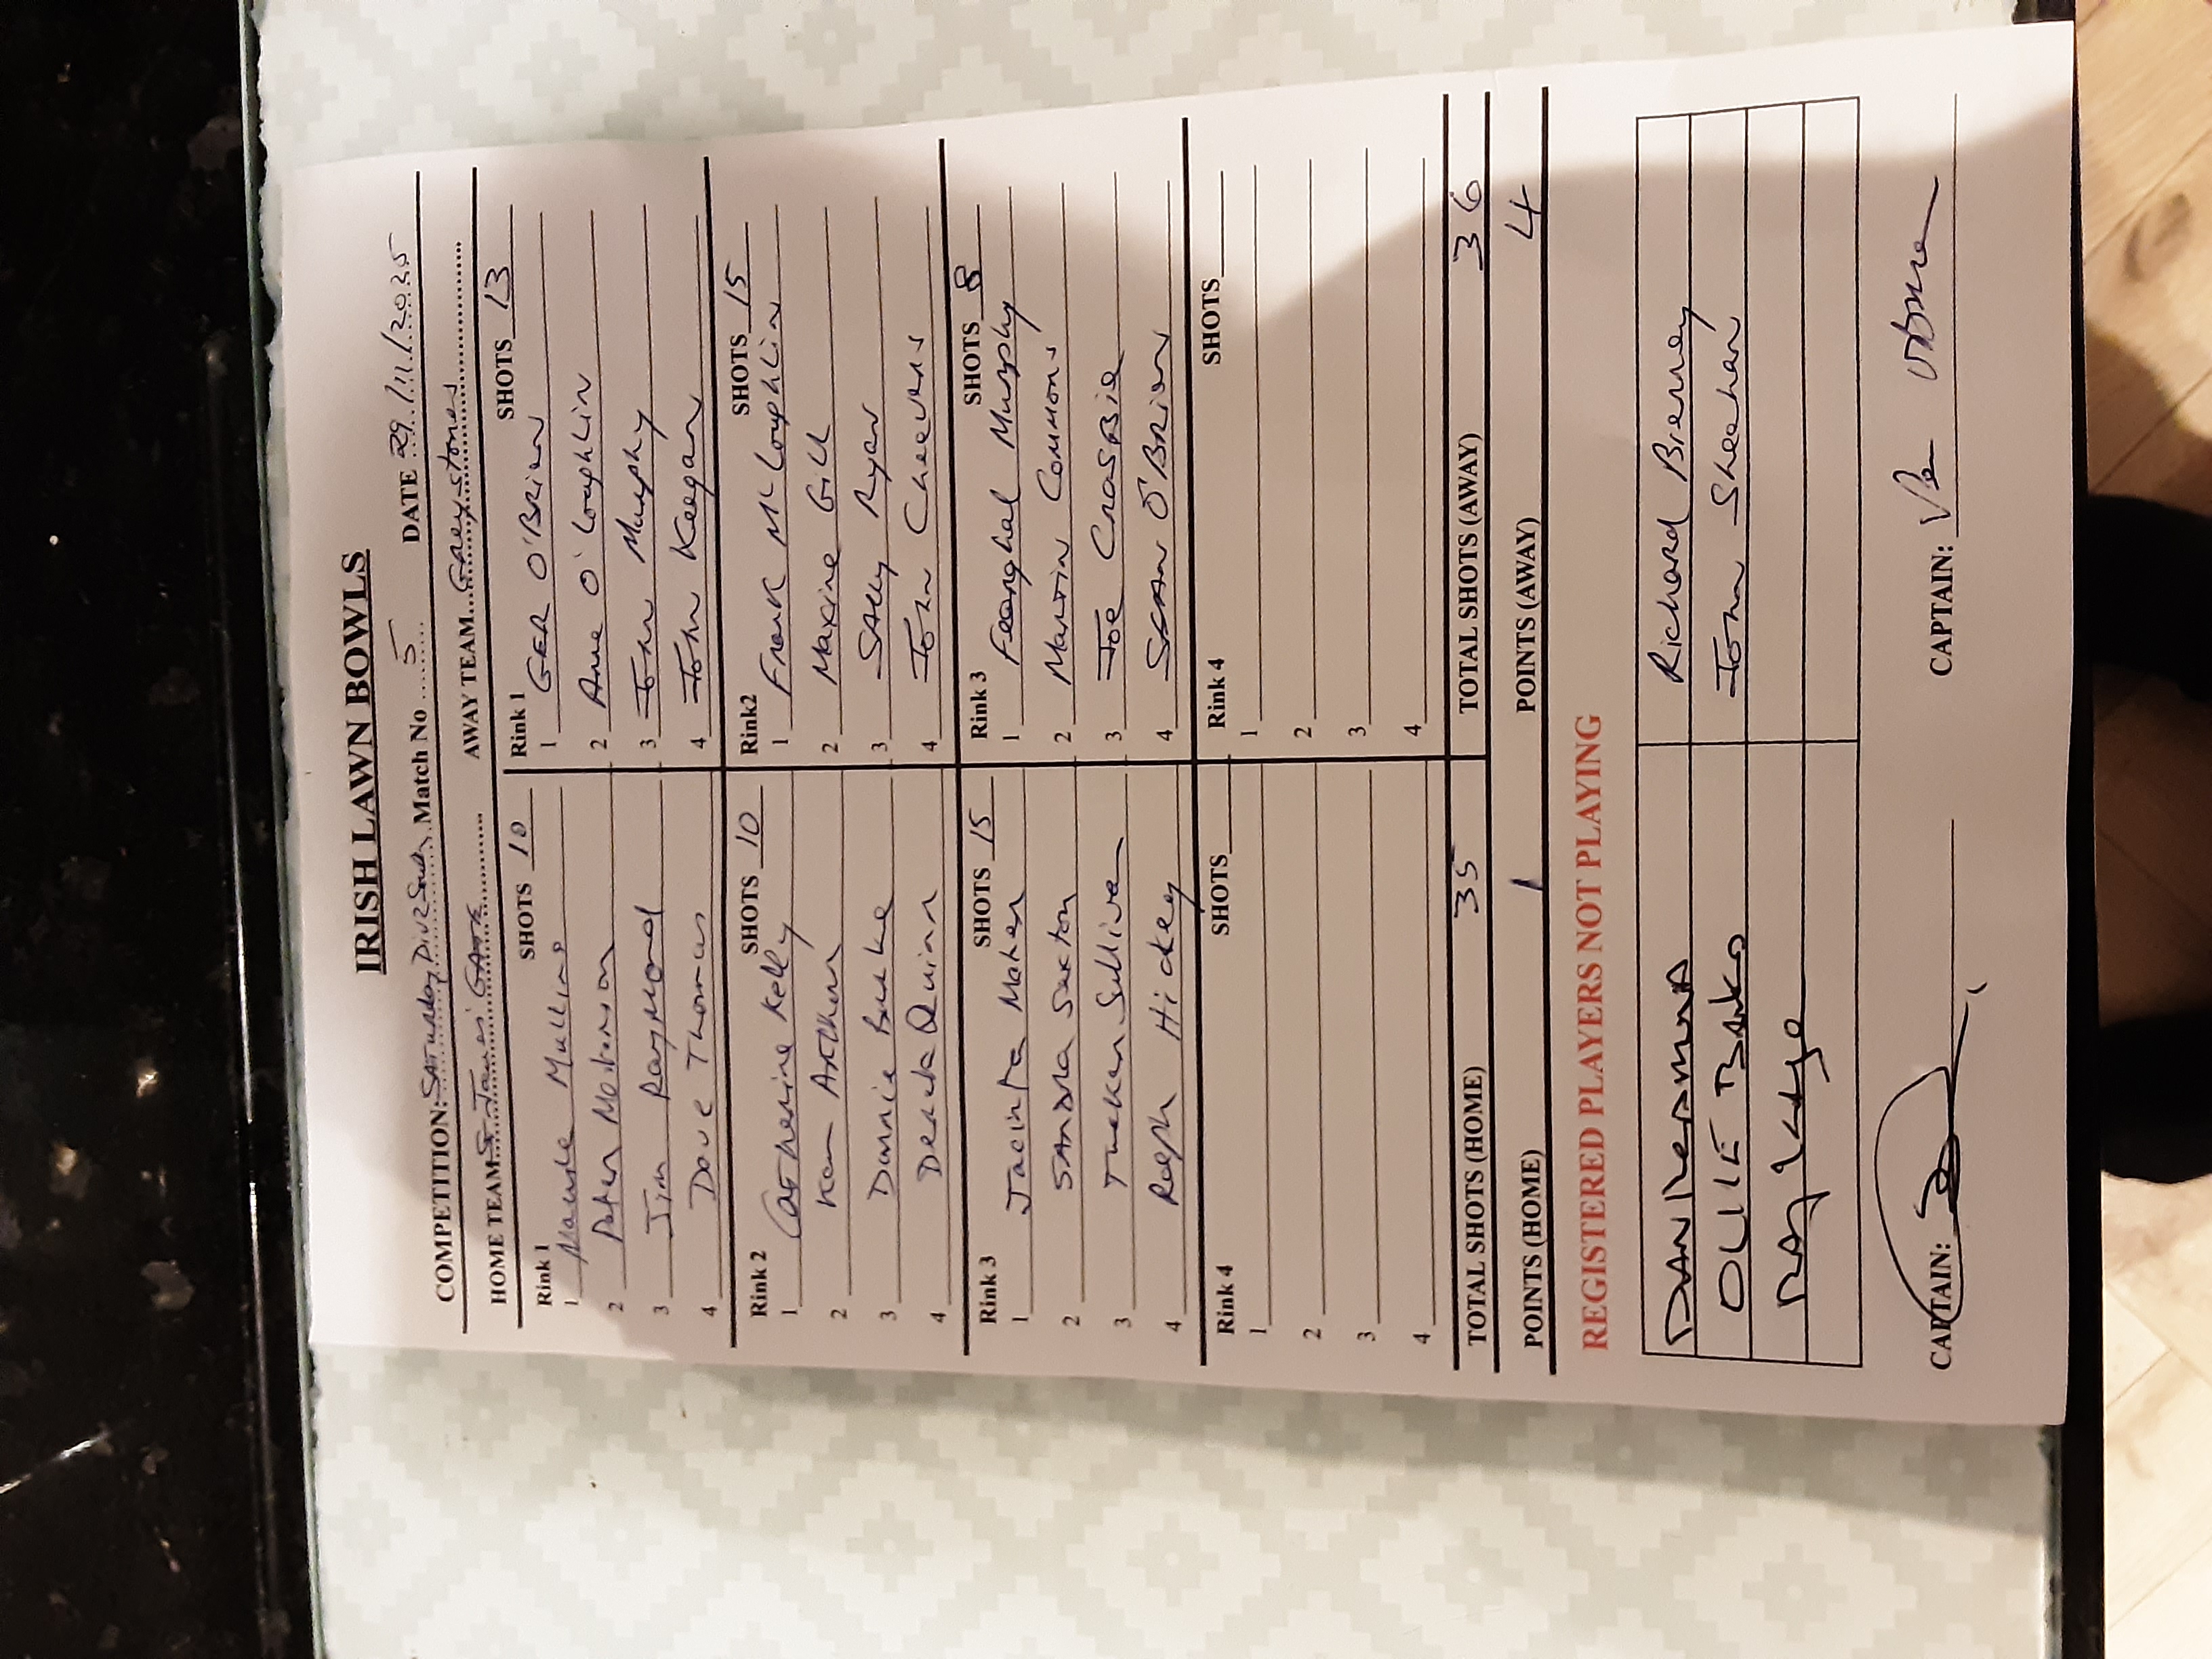 IRISH LAWN BOWLS
COMPETITION: SATURDAY DIV 2 South Match No 5 DATE 29/11/2025
HOME TEAM St James' GATE AWAY TEAM Greystones
Rink 1 SHOTS 10 Rink 1 SHOTS 13
1 Mullins 1 GER O'BRIEN
2 Peter 2 Anne O'Loughlin
3 Jim Raymond 3 John Murphy
4 Dave Thomas 4 John Keegan
Rink 2 SHOTS 10 Rink2 SHOTS 15
1 Catherine Kelly 1 Frank McLoughlin
2 Ken Arthur 2 Maxine Gill
3 Dannie Burke 3 SALLY Ryan
4 Derek Quinn 4 John Cheevers
Rink 3 SHOTS 15 Rink 3 SHOTS 8
1 Jacinta Maher 1 Fearghal Murphy
2 SANDRA Sexton 2 Martin Commons
3 Sullivan 3 Joe CROSBIE
4 Ralph Hickey 4 SEAN O'BRIEN
Rink 4 SHOTS Rink 4 SHOTS
1 1
2 2
3 3
4 4
TOTAL SHOTS (HOME) 35 TOTAL SHOTS (AWAY) 36
POINTS (HOME) 1 POINTS (AWAY) 4
REGISTERED PLAYERS NOT PLAYING
DAN Richard Bierney
OLLIE BANKS John Sheehan
RAY
CAPTAIN: CAPTAIN: